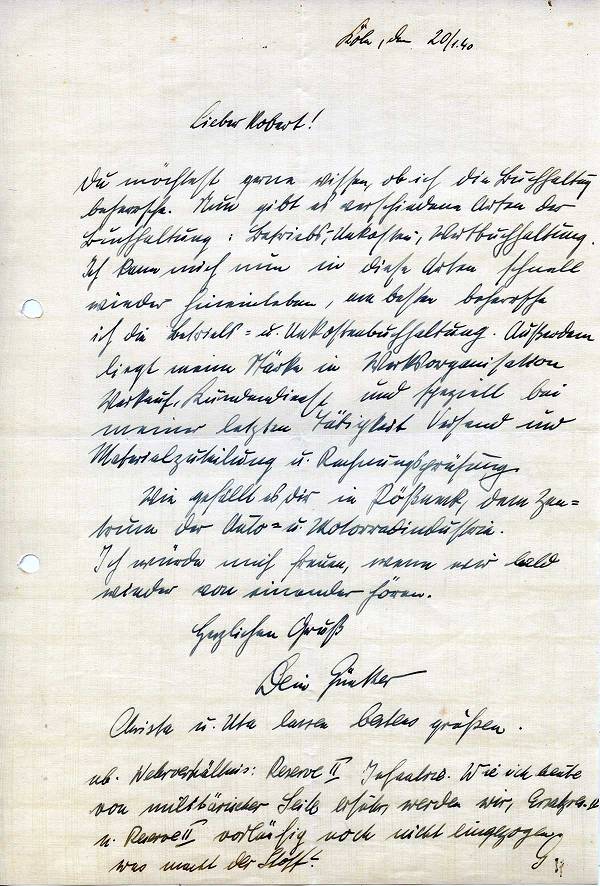 Köln, den 20/1.40
Lieber Robert!
Du möchtest gerne wissen, ob ich die Buchhaltung
beherrsche. Nun gibt es verschiedene Arten der
Buchhaltung: Betriebs-, Unkosten-, Wertbuchhaltung.
Ich kann mich nun in diese Arten schnell
wieder hineinleben, am besten beherrsche
ich die Betriebs- u. Unkostenbuchhaltung. Außerdem
liegt meine Stärke in Werksorganisation
Verkauf, Kundendienst und speziell bei
meiner letzten Tätigkeit Versand und
Materialzuteilung u. Rechnungsprüfung.
Wie gefällt es dir in Pößneck, dem Zen=
trum der Auto= u. Motorradindustrie.
Ich würde mich freuen, wenn wir bald
wieder von einander hören.
Herzlichen Gruß
Dein Günther
Christa u. Uta lassen bestens grüßen.
nb. Wehrverhältnis: Reserve II Infanterie. Wie ich heute
von militärischer Seite erfuhr, werden wir, Ersatzres. II
u. Reserve II vorläufig noch nicht eingezogen
was macht der Stoff?